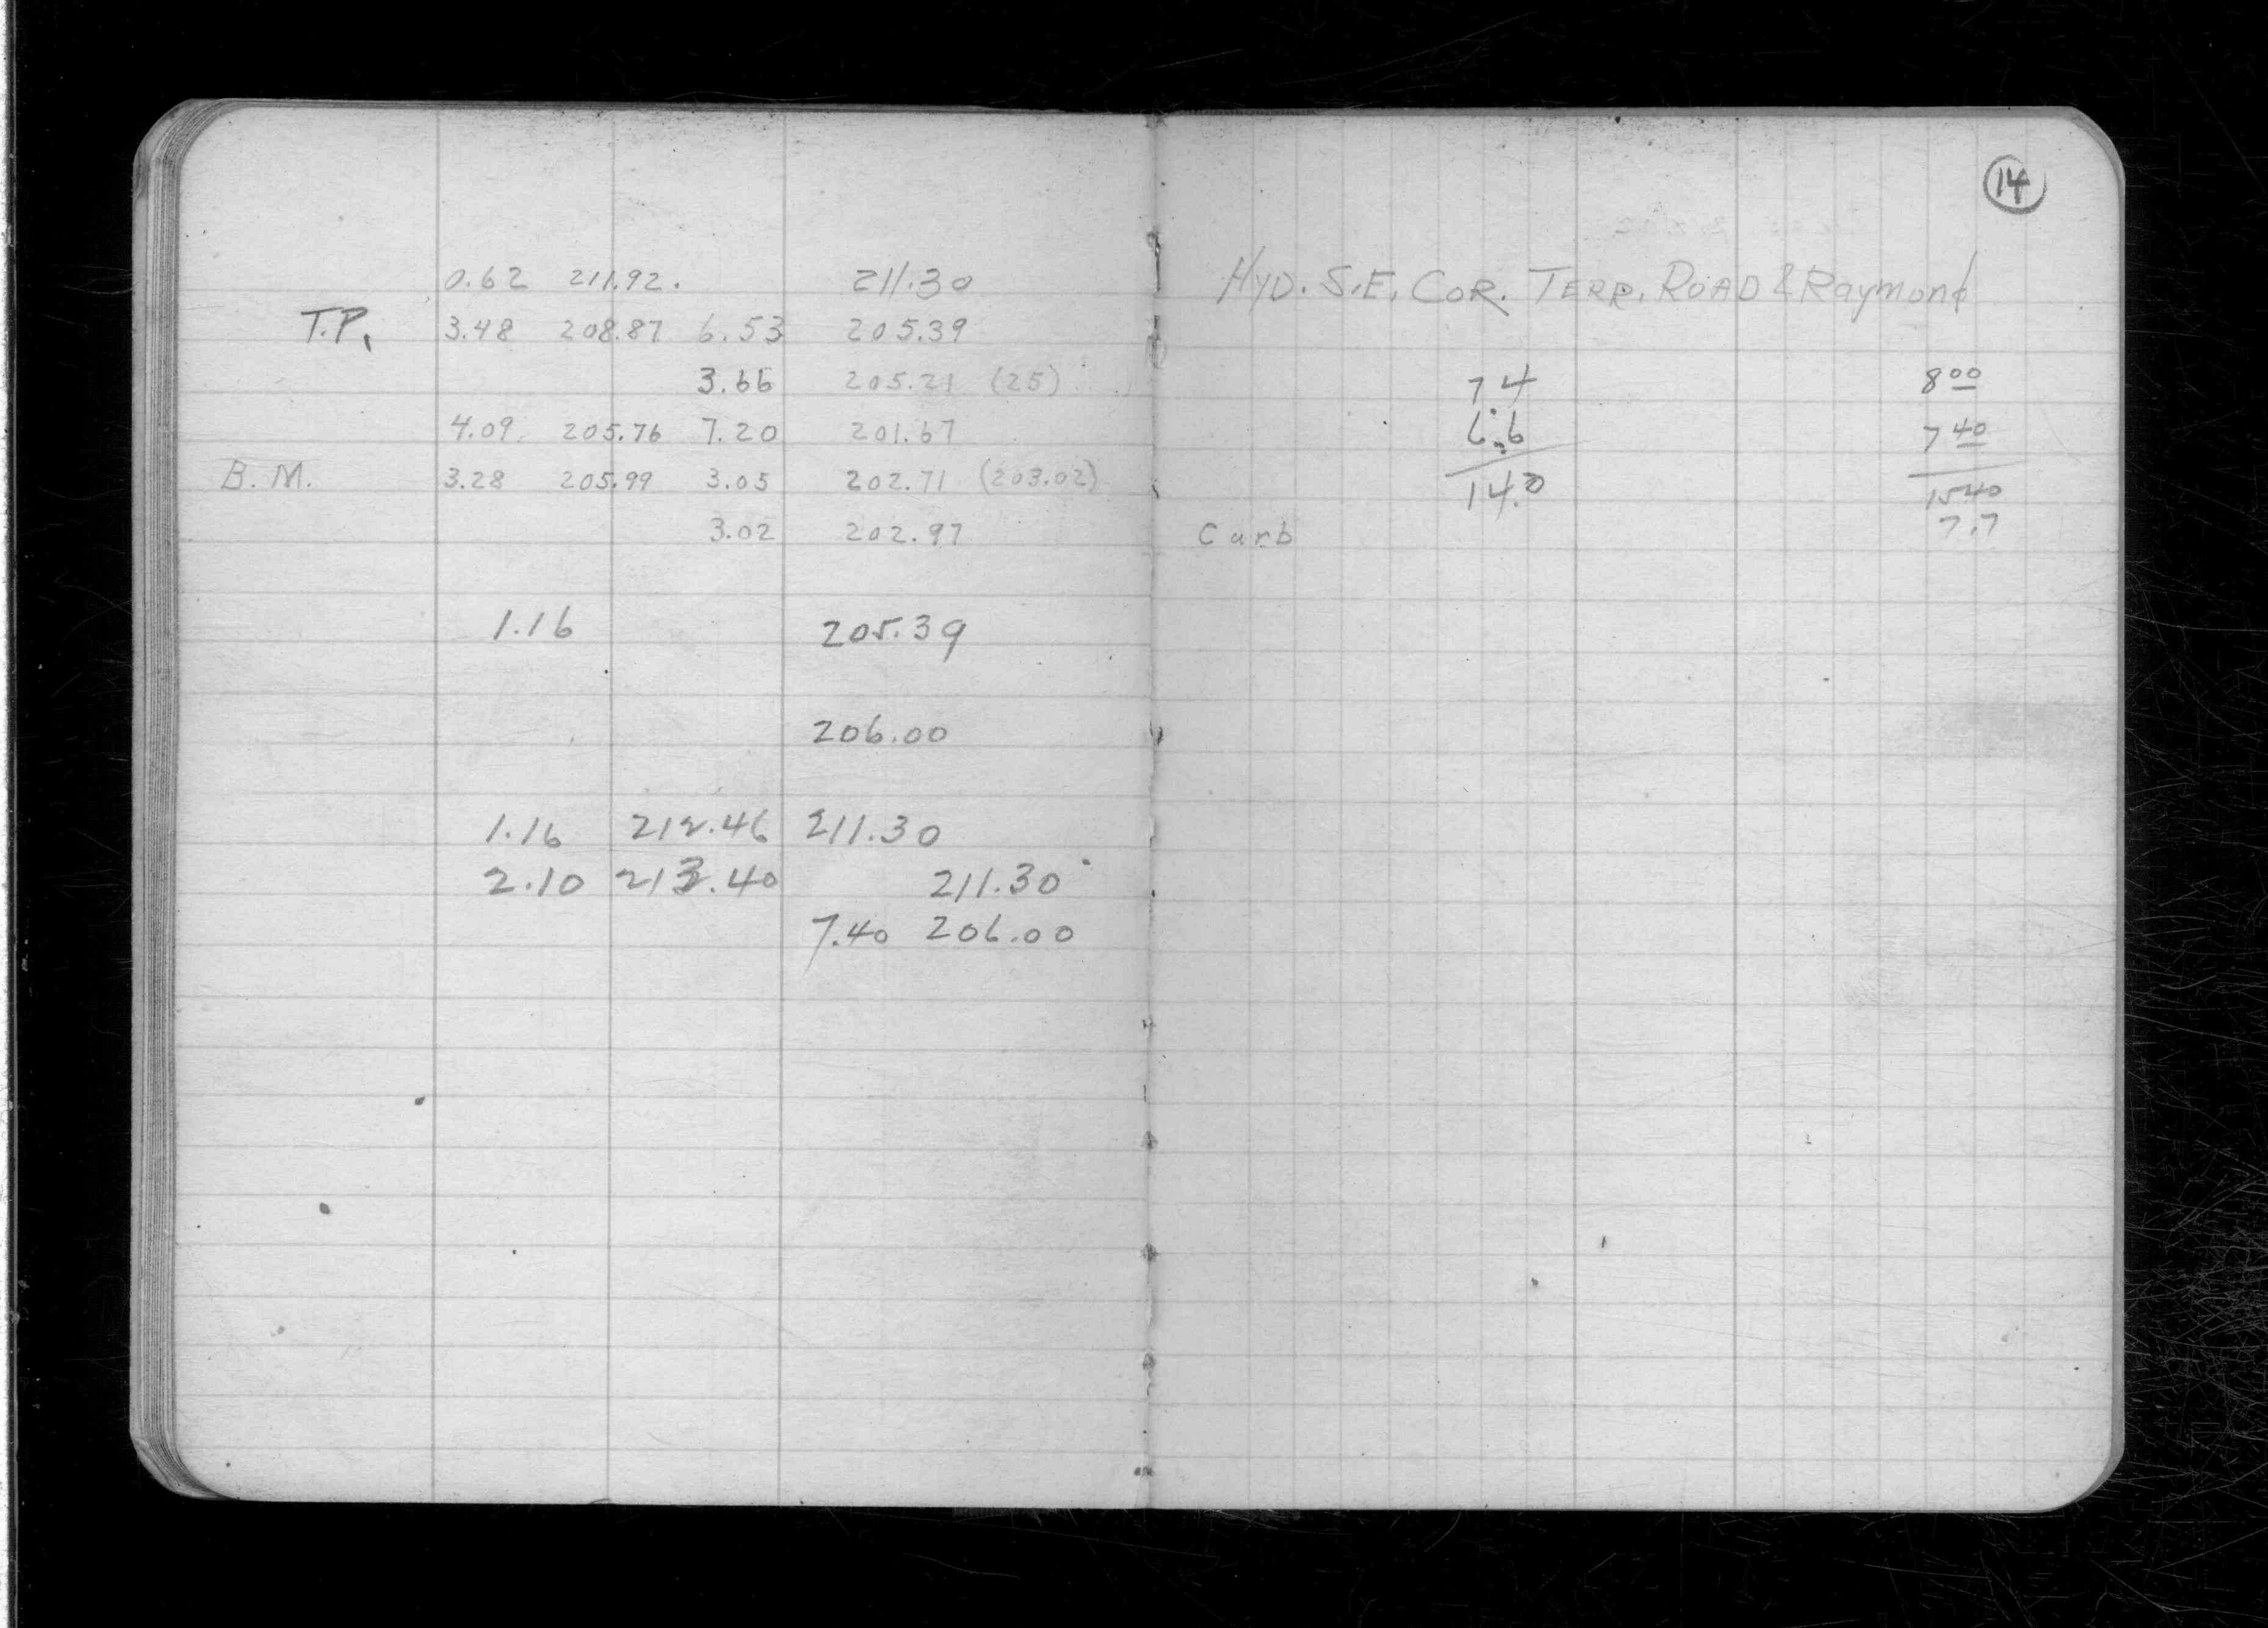 14
0.62 211.92. 211.30
T.P. 3.48 208.87 6.53 205.39
3.66 205.21 (25)
4.09 205.76 7.20 201.67
B.M. 3.28 205.99 3.05 202.71 (203.02)
3.02 202.97
1.16 205.39
206.00
1.16 212.46 211.30
2.10 213.40 211.30
7.40 206.00
HYD. S.E. COR. TERR. ROAD & Raymond
7.4 8 00
6.6 7 40
14.0 1540
7.7
Curb